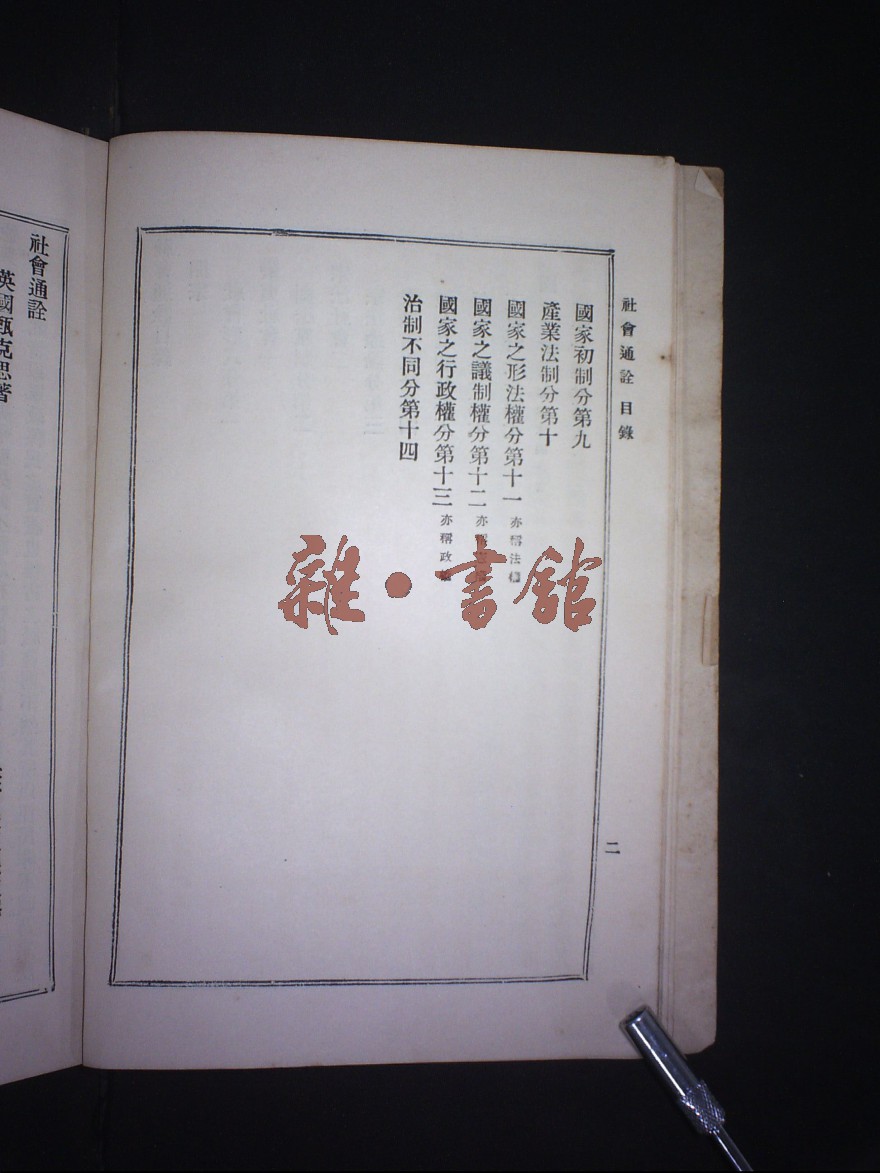 社會通詮 目錄
國家初制分第九
產業法制分第十
國家之形法權分第十一 亦稱法權
國家之議制權分第十二 亦稱
國家之行政權分第十三 亦稱政權
治制不同分第十四
二
社會通詮
英國甄克思著
雜·書館